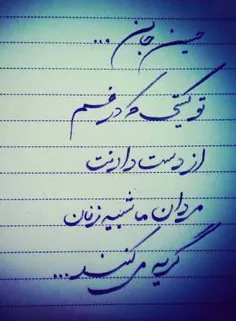 حسین جان ...
تو کیستی که در غم
از دست دادنت
مردان ما شبیه زنان
گریه می کنند ...